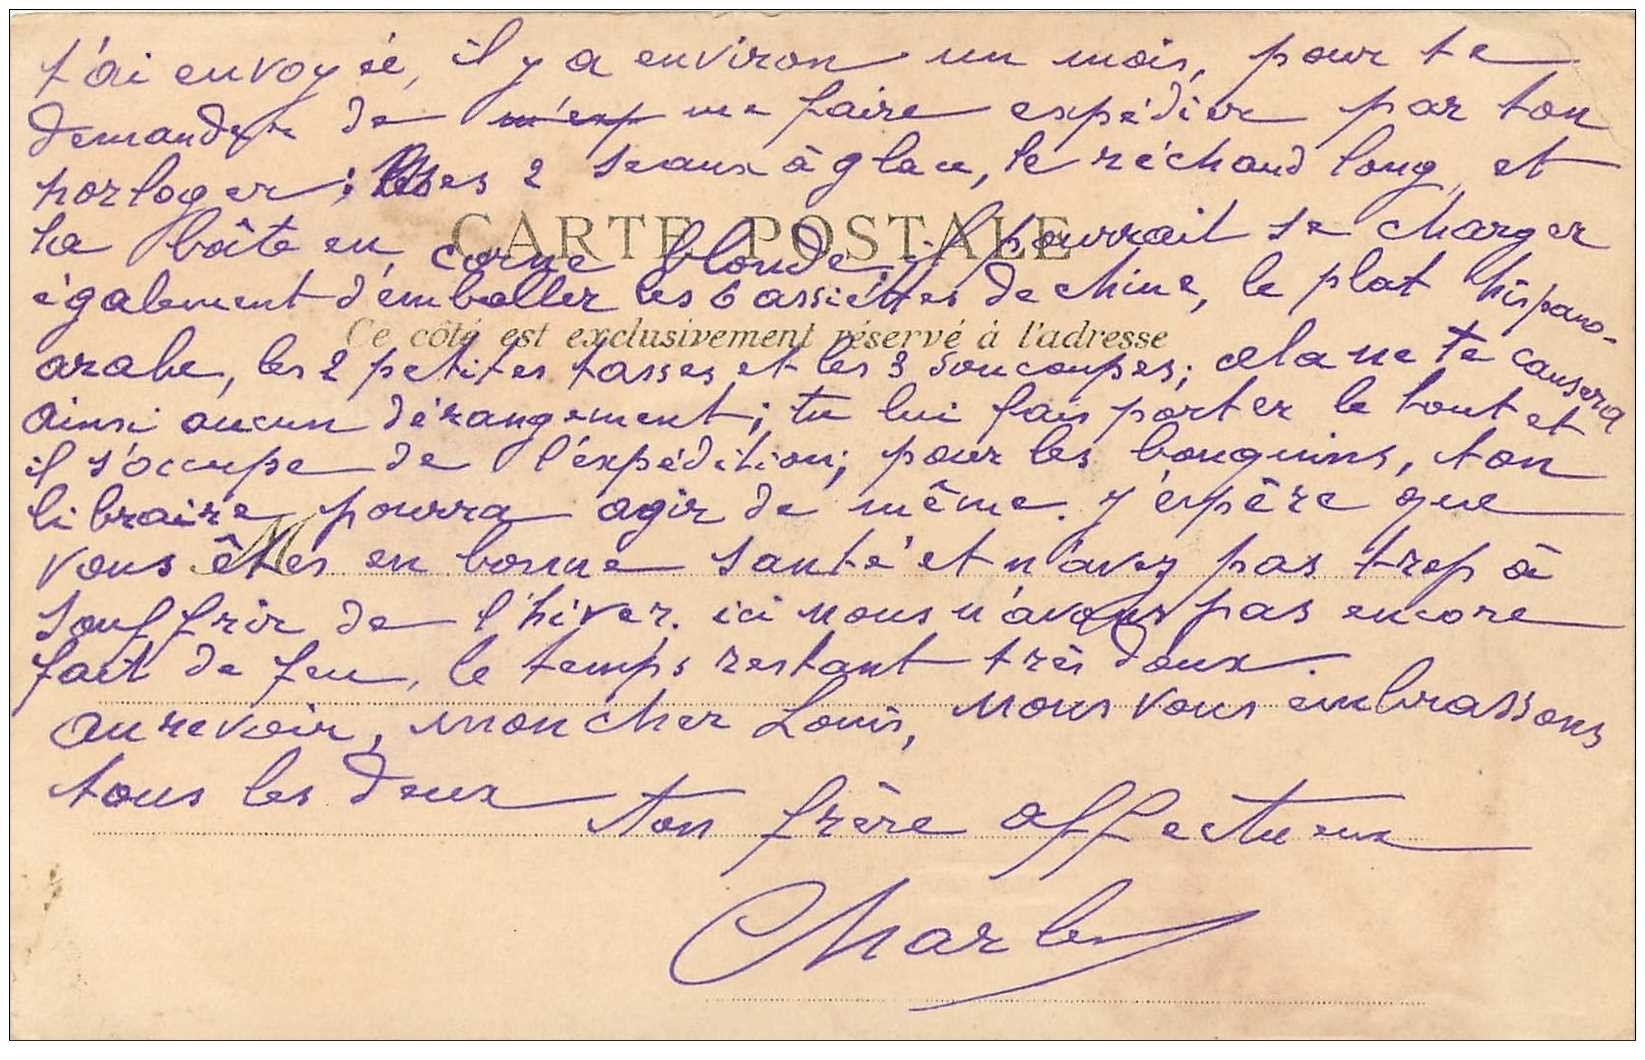 t'ai envoyée, il y a environ un mois, pour te
demander de m'exp me faire expédier par ton
horloger; les 2 seaux à glace, le réchaud long, et
la boîte en corne blonde; il pourrait se charger
CARTE POSTALE
également d'emballer les 6 assiettes de chine, le plat hispano-
Ce côté est exclusivement réservé à l'adresse
arabe, les 2 petites tasses et les 3 soucoupes; cela ne te causera
ainsi aucun dérangement; tu lui fais porter le tout et
il s'occupe de l'expédition; pour les bouquins, ton
libraire pourra agir de même. j'espère que
M
vous êtes en bonne santé et n'avez pas trop à
souffrir de l'hiver. ici nous n'avons pas encore
fait de feu, le temps restant très doux.
au revoir, mon cher Louis, nous vous embrassons
tous les deux
ton frère affectueux
Charles